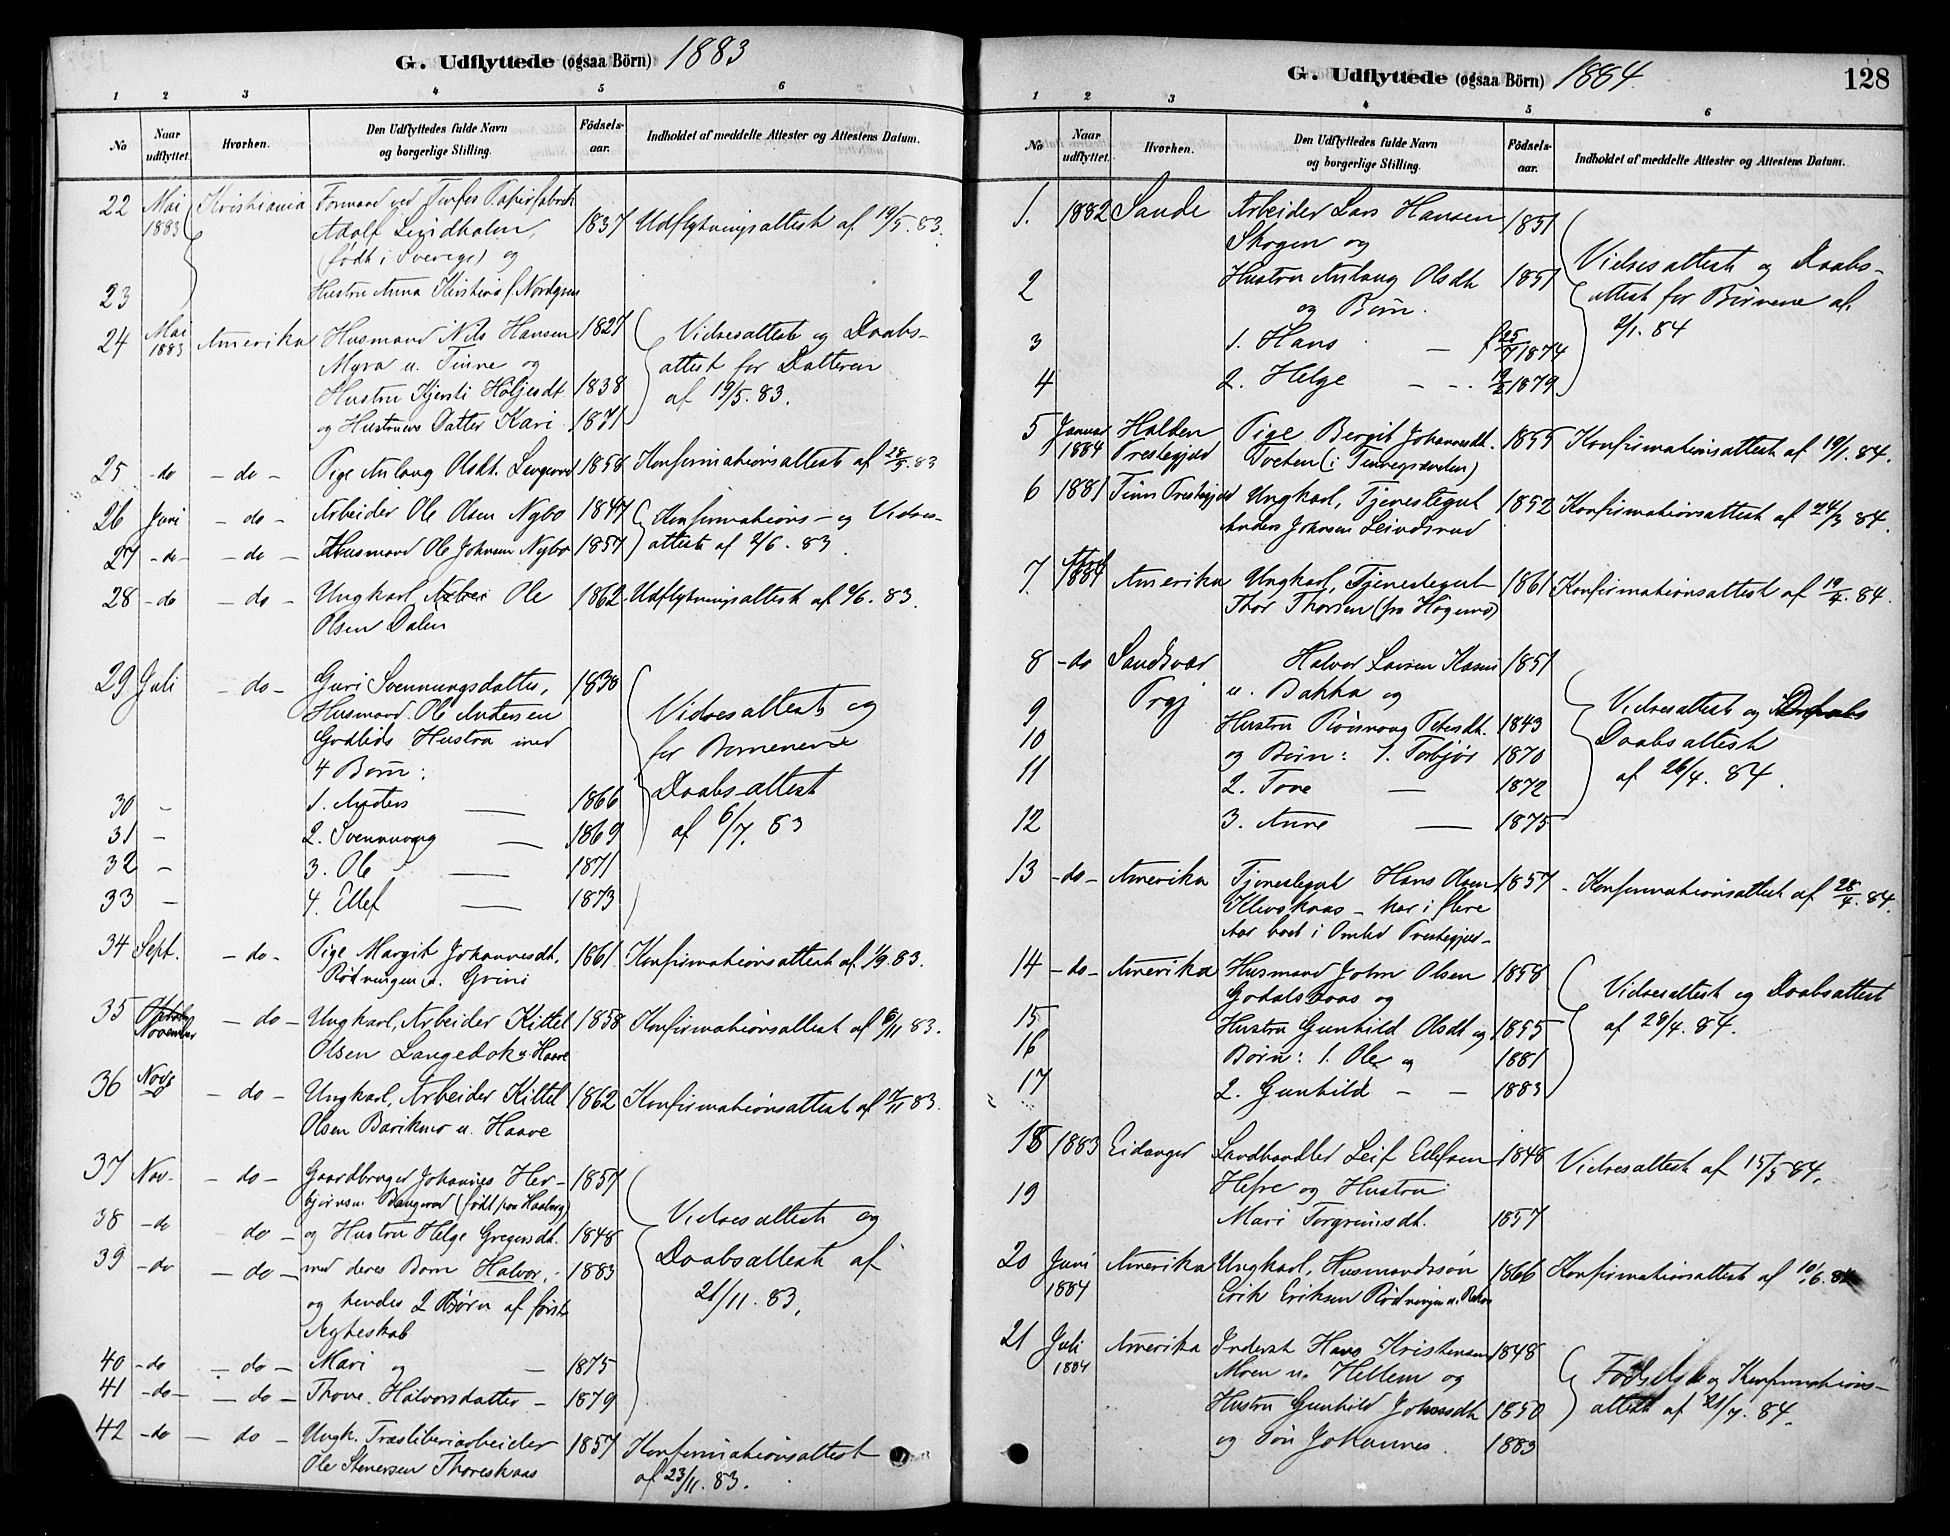 G. Udflyttede (ogsaa Börn) 1883
1 2 3 4 5 6
No
Naar udflyttet.
Hvorhen.
Den Udflyttedes fulde Navn og borgerlige Stilling.
Födsels-aar.
Indholdet af meddelte Attester og Attestens Datum.
22 Mai 1883 Kristiania Formand ved Papirfabrik
Adolf 1837 Udflytningsattest af 19/5. 83.
(født i Sverige) og
23 Hustru Anna f. Nordgren
24 Mai 1883 Amerika Husmand Nils Hansen 1827 Vidnesattest og Daabs-
Myra u. Tinne og attest for Datteren
Hustru Kjersti Holjesdt 1838 af 19/5. 83.
og Hustruens Datter Kari 1871
25 -do - do - Pige Aslaug Olsdt. 1856 Konfirmationsattest af 28/5. 83
26 Juni - do - Arbeider Ole Olsen Nybo 1847 Konfirmations- og Vidnes-
27 -do- -do- Husmand Ole Johnsen Nybo 1857 attest af 2/6. 83.
28 -do - do - Ungkarl Ole 1862 Udflytningsattest af 9/6. 83.
Olsen Dalen
29 Juli - do - Guri Svennungsdatter, 1838 Vidnesattest og
Husmand Ole Andersen
Godlids Hustru med for Børnenes
4 Børn: Daabsattest
30 - 1. Anders — 1866 af 6/7. 83
31 - 2. Svennung — 1869
32 - 3. Ole — 1871
33 - 4. Ellef — 1873
34 Sept. - do - Pige Margit Johannesdt. 1861 Konfirmationsattest af 1/9. 83.
Rødningen u. Gvini
35 November - do - Ungkarl, Arbeider Kittel 1858 Konfirmationsattest af 6/11 83.
Olsen Langedok u. Haave
36 Novb - do - Ungkarl, Arbeider Kittel 1862 Konfirmationsattest af 7/11 83.
Olsen Barikmo u. Haave
37 Nov- - do - Gaardbruger Johannes Her- 1857 Vidnesattest og
bjørnsen (født paa )
38 -do - do - og Hustru Helge Gregersdt. 1848 Daabsattest af
39 -do - do - med deres Barn Halvor, 1883 21/11. 83.
og hendes 2 Børn af første
Ægteskab
40 -do - do - Mari og — 1875
41 -do- - do - Thone Halvorsdatter - 1879
42 -do - do - Ungk. Træsliberiarbeider 1857 Konfirmationsattest
Ole Stenersen Thoreskaas af 23/11. 83.
G. Udflyttede (ogsaa Börn) 1884. 128
1 2 3 4 5 6
No
Naar udflyttet.
Hvorhen.
Den Udflyttedes fulde Navn og borgerlige Stilling.
Födsels-aar.
Indholdet af meddelte Attester og Attestens Datum.
1. 1882 Sande Arbeider Lars Hansen 1851 Vidnesattest og Daabs-
Skogen og
2 Hustru Aslaug Olsdt 1851 attest for Børnene af
og Børn. 2/1. 84
3 1. Hans — f. 25/7 1874
4 2. Helge - - 1879
5 Januar 1884 Halden Prestegjeld Pige Bergit Johannesdt. 1855 Konfirmationsattest af 19/1. 84.
Tveten (i Tinnegrænden)
6 1881 Tinn Prestegjeld Ungkarl, Tjenestegut 1852 Konfirmationsattest af 24/3 84.
Anders Johnsen
7. April 1884 Amerika Ungkarl, Tjenestegut 1861 Konfirmationsattest af 19/4. 84.
Thor Thorsen (fra Høgemo)
8 -do Sandsvær Prgj Halvor Larsen 1851 Vidnesattest og
u. Bakka og
9 Hustru Røisnaug Petersdt. 1843 Daabsattest
10 og Børn: 1. Torbjør 1870 af 26/4. 84.
11 2. Tone — 1872
12 3. Anne — 1875
13 -do- Amerika Tjenestegut Hans Olsen 1857 - Konfirmationsattest af 28/4. 84.
- har i flere
Aar boet i Omlid Prestegjeld-
14 -do- Amerika Husmand John Olsen 1858 Vidnesattest og Daabsattest
Godalskaas og af 28/4. 84.
15 Hustru Gunhild Olsdt og 1855
16 Børn: 1. Ole og 1881
17 2. Gunhild - - 1883
18 1883 Eidanger Landhandler Leif Ellefsen 1848 Vidnesattest af 15/5 84.
19 Hefre og Hustru
Mari Torgrimsdt. 1857
20 Juni 1884 Amerika Ungkarl, Husmandssøn 1866 Konfirmationsattest af 10/6. 84
Erik Eriksen Rødningen u.
21 Juli 1884 Amerika Inderst Hans Kristensen 1848 Fødsels og Konfirmations-
Moen u. Hellem og
Hustru Gunhild Johnsdt 1850 attest af 21/7. 84.
og Søn Johannes. 1883